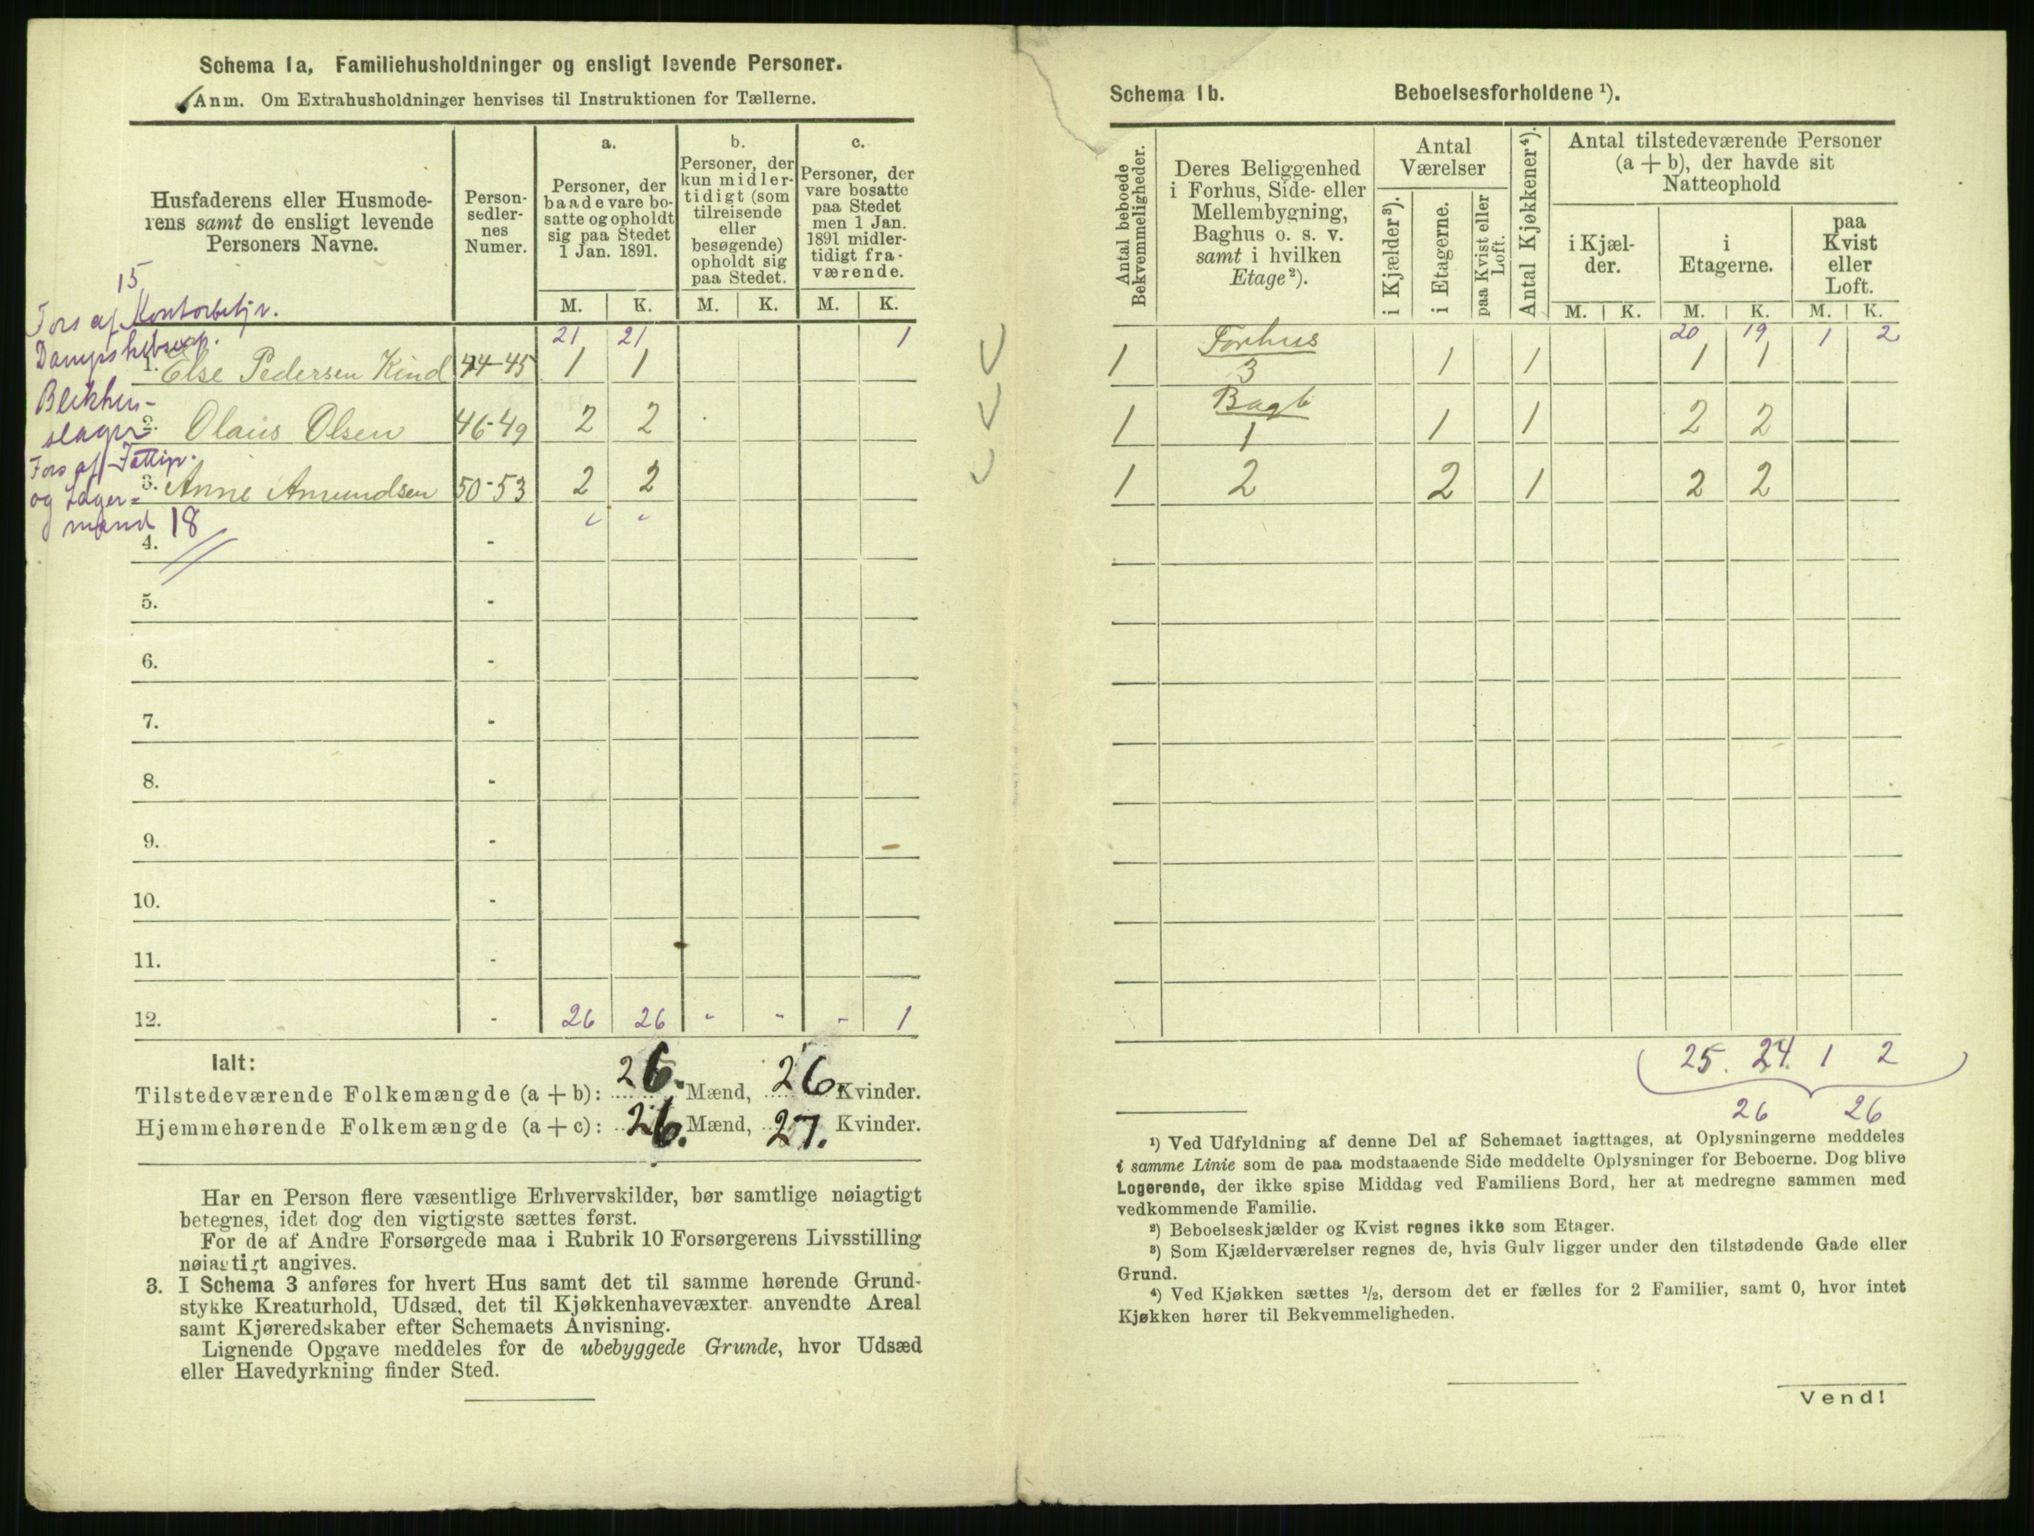 Schema 1a, Familiehusholdninger og ensligt levende Personer.
Anm. Om Extrahusholdninger henvises til Instruktionen for Tællerne.
Husfaderens eller Husmode-
rens samt de ensligt levende
Personers Navne.
Person-
sedler-
nes
Numer.
a.
Personer, der
baade vare bo-
satte og opholdt
sig paa Stedet
1 Jan. 1891.
b.
Personer, der
kun midler-
tidigt (som
tilreisende
eller
besøgende)
opholdt sig
paa Stedet.
c.
Personer, der
vare bosatte
paa Stedet
men 1 Jan.
1891 midler-
tidigt fra-
værende.
M. K. M. K. M. K.
15
Fors af Kontorbetjr.
21 21 1
1. Else Pedersen Kind 44-45 1 1
Blikken-
slager
2. Olaus Olsen 46-49 2 2
Fors af Fattigv.
og Lager-
mand 18
3. Anne Amundsen 50-53 2 2
4. -
5. -
6. -
7. -
8. -
9. -
10. -
11. -
12. - 26 26 " " " 1
Ialt:
Tilstedeværende Folkemængde (a + b): 26. Mænd, 26. Kvinder.
Hjemmehørende Folkemængde (a + c): 26. Mænd, 27. Kvinder.
Har en Person flere væsentlige Erhvervskilder, bør samtlige nøiagtigt
betegnes, idet dog den vigtigste sættes først.
For de af Andre Forsørgede maa i Rubrik 10 Forsørgerens Livsstilling
nøiagtigt angives.
3. I Schema 3 anføres for hvert Hus samt det til samme hørende Grund-
stykke Kreaturhold, Udsæd, det til Kjøkkenhavevæxter anvendte Areal
samt Kjøreredskaber efter Schemaets Anvisning.
Lignende Opgave meddeles for de ubebyggede Grunde, hvor Udsæd
eller Havedyrkning finder Sted.
Schema 1b. Beboelsesforholdene ¹).
Antal beboede
Bekvemmeligheder.
Deres Beliggenhed
i Forhus, Side- eller
Mellembygning,
Baghus o. s. v.
samt i hvilken
Etage²).
Antal
Værelser
i Kjælder³).
i Etagerne.
paa Kvist eller
Loft.
Antal Kjøkkener⁴).
Antal tilstedeværende Personer
(a + b), der havde sit
Natteophold
i Kjæl-
der.
i
Etagerne.
paa
Kvist
eller
Loft.
M. K. M. K. M. K.
20 19 1 2
1 Forhus 3 1 1 1 1
1 Bagb 1 1 1 2 2
1 2 2 1 2 2
25. 24. 1 2
26 26
¹) Ved Udfyldning af denne Del af Schemaet iagttages, at Oplysningerne meddeles
i samme Linie som de paa modstaaende Side meddelte Oplysninger for Beboerne. Dog blive
Logerende, der ikke spise Middag ved Familiens Bord, her at medregne sammen med
vedkommende Familie.
²) Beboelseskjælder og Kvist regnes ikke som Etager.
³) Som Kjælderværelser regnes de, hvis Gulv ligger under den tilstødende Gade eller
Grund.
⁴) Ved Kjøkken sættes ¹/₂, dersom det er fælles for 2 Familier, samt 0, hvor intet
Kjøkken hører til Bekvemmeligheden.
Vend!